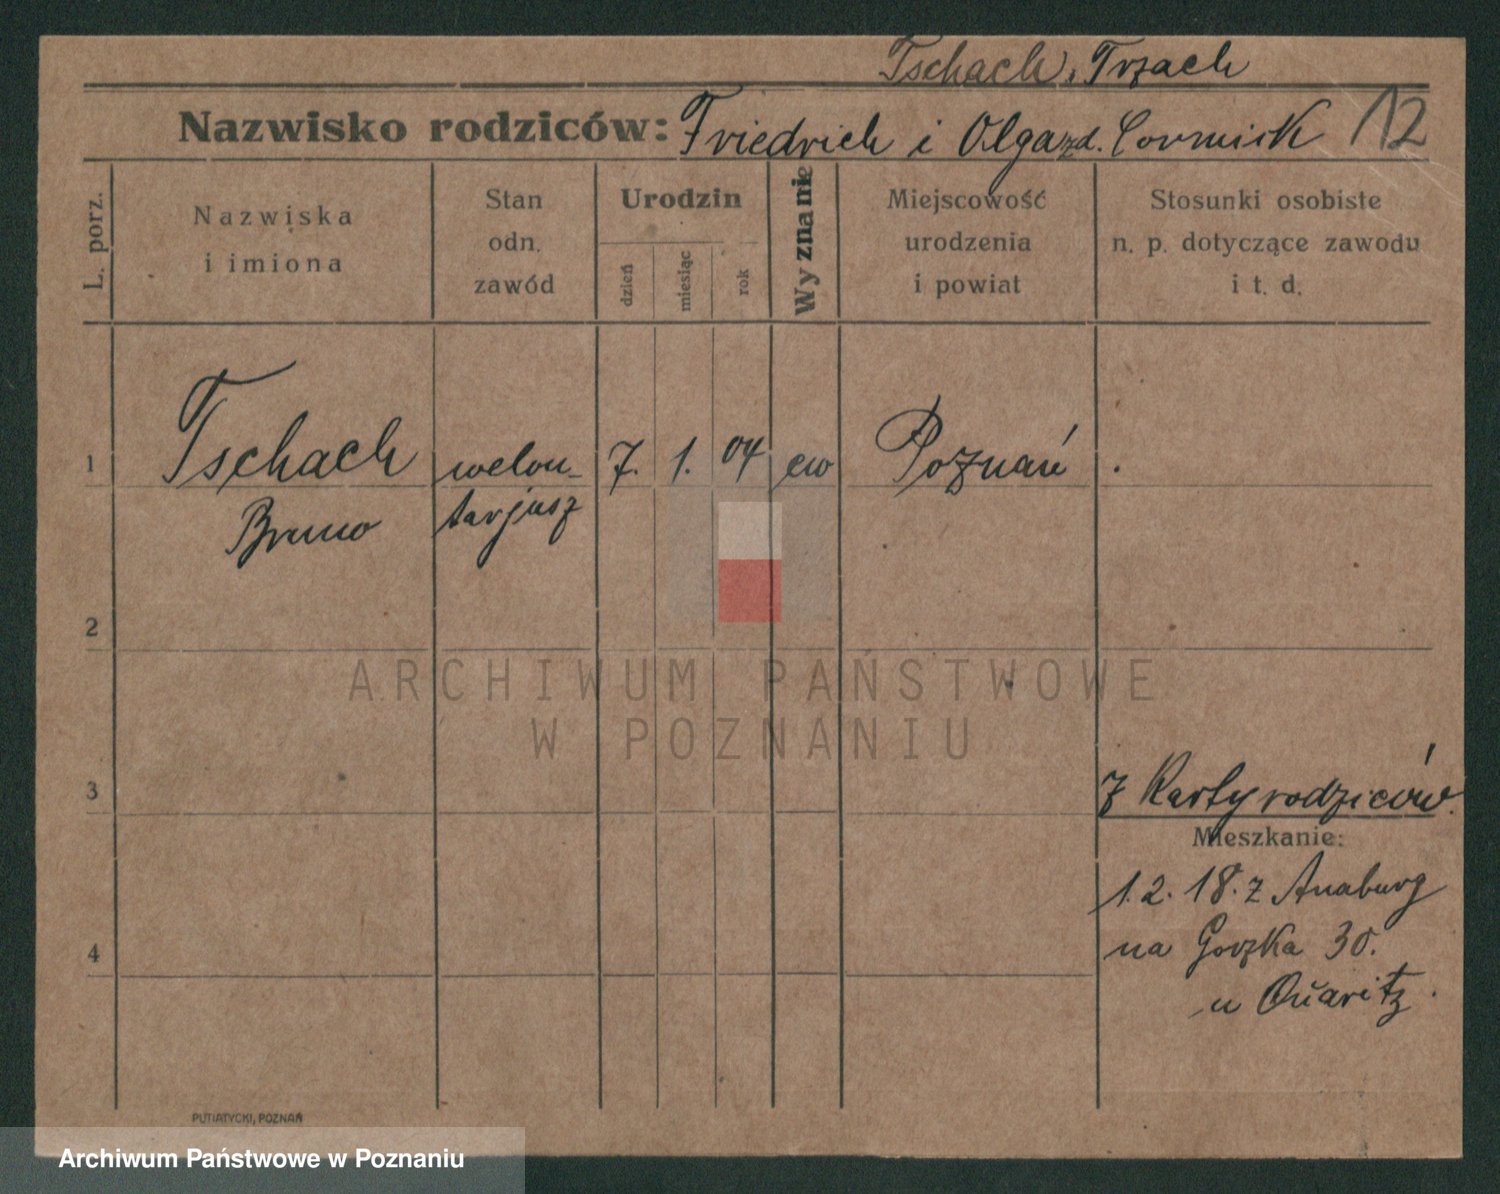 Tschach, Trzach
Nazwisko rodziców: Friedrich i Olga zd. Cormisk 12
L. porz.
Nazwiska
i imiona
Stan
odn.
zawód
Urodzin
dzień
miesiąc
rok
Wyznanie
Miejscowość
urodzenia
i powiat
Stosunki osobiste
n. p. dotyczące zawodu
i t. d.
1 Tschach welon- 7. 1. 04 ew Poznań
Bruno tarjusz
2
3
z Karty rodziców.
Mieszkanie:
1.2.18. z Anaburg
na Gorzka 30.
4
u Quaritz.
PUTIATYCKI, POZNAŃ
ARCHIWUM PAŃSTWOWE
W POZNANIU
Archiwum Państwowe w Poznaniu